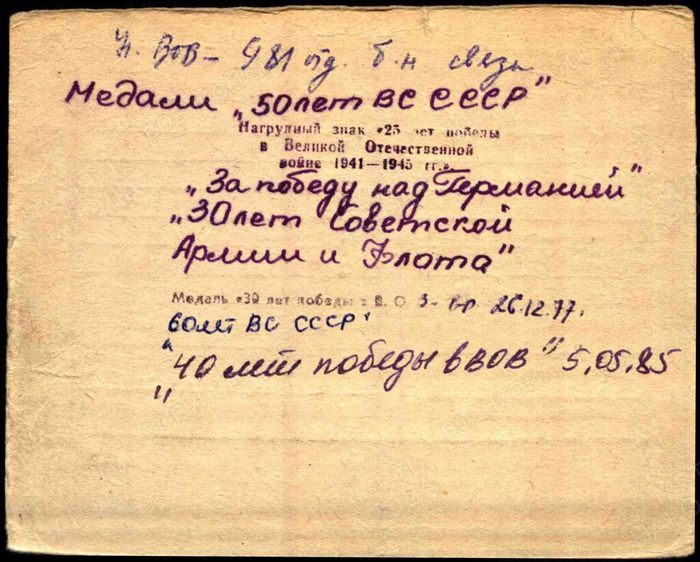 У. ВОВ – 981 отд. б-н связи
Медали „50 лет ВС СССР"
Нагрудный знак «25 лет победы
в Великой Отечественной
войне 1941—1945 гг.»
„За победу над Германией"
„30 лет Советской
Армии и Флота"
Медаль «30 лет победы в В. О. 26.12.77.
60 лет ВС СССР"
"40 лет победы в ВОВ" 5.05.85
"